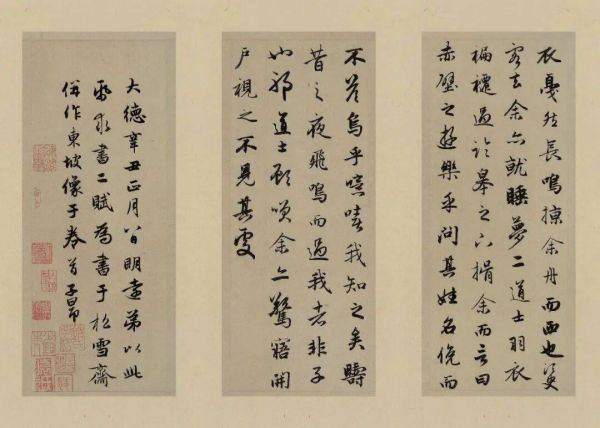 衣戛然長鳴掠余舟而西也須臾
客去余亦就睡夢二道士羽衣
蹁躚過臨皋之下揖余而言曰
赤壁之遊樂乎問其姓名俛而
不答嗚乎噫嘻我知之矣疇
昔之夜飛鳴而過我者非子
也邪道士顧笑余亦驚寤開
戶視之不見其處
大德辛丑正月八日明遠弟以此
紙求書二賦為書于松雪齋
併作東坡像于卷首子昂